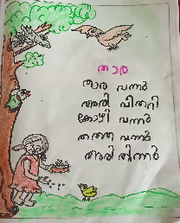 താര
താര വന്നു
അരി വിതറി
കോഴി വന്നു
തത്ത വന്നു
അരി തിന്നു